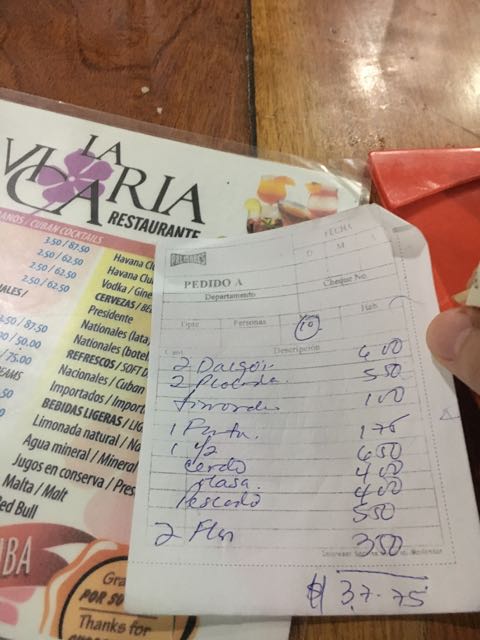 LA
VICARIA
RESTAURANTE
ANOS / CUBAN COCKTAILS
3.50 / 87.50
2.50 / 62.50
2.50 / 62.50
2.50 / 62.50
Havana Clu
Havana Clu
Vodka / Gine
CERVEZAS / BE
Presidente
Nationales (lata
Nationales (botel
REFRESCOS / SOFT D
Nacionales / Cuban
Importados / Import
BEBIDAS LIGERAS / LIG
Limonada natural / Na
Agua mineral / Mineral
Jugos en conserva / Pres
Malta / Malt
Red Bull
ALES /
3.50 / 87.50
00 / 50.00
/ 75.00
EAMS
.50
BA
Gra
POR SU
Thanks for
PALMARES
FECHA
D M
PEDIDO A
Departamento
Cheque No.
Dpte Personas 10 Hab.
Cant. Descripción
2 400
2 550
100
1 175
1 1/2 650
Cerdo 400
Masa 400
Pescado 550
2 Flan 350
$ 37.75